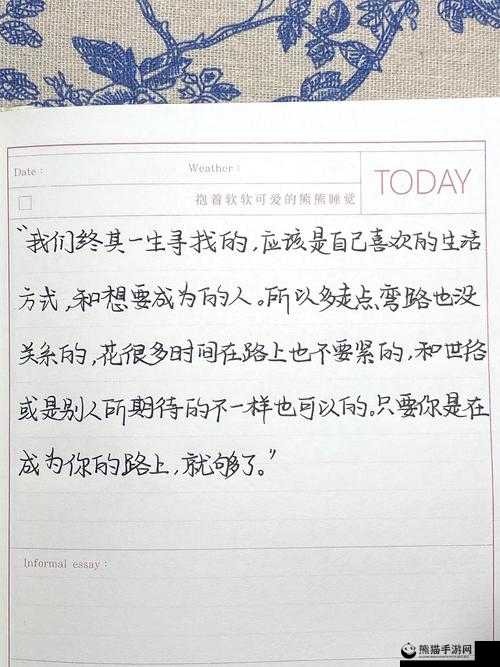 Date:
Weather:
TODAY
抱着软软可爱的熊熊睡觉
“我们终其一生寻找的,应该是自己喜欢的生活
方式,和想要成为的人。所以多走点弯路也没
关系的,花很多时间在路上也不要紧的,和世俗
或是别人所期待的不一样也可以的。只要你是在
成为你的路上,就够了。”
Informal essay:
熊猫手游网